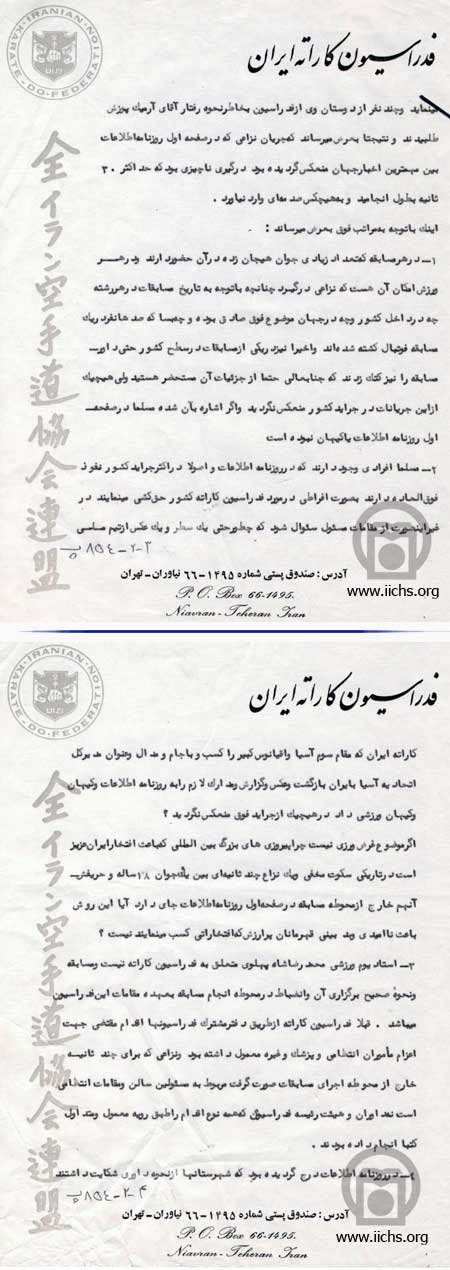 IRANIAN KARATE-DO FEDERATION
فدراسیون کاراته ایران
全イラン空手道協会連盟
مینماید وچند نفر از دوستان وی ازفدراسیون بخاطرنحوه رفتار آقای آرمیك پوزش
طلبیدند و نتیجتا بعرض میرساند که جریان نزاعی که درصفحه اول روزنامه اطلاعات
بین مهمترین اخبار جهان منعکس گردیده بود درگیری ناچیزی بود که حد اکثر ۳۰
ثانیه بطول انجامید و بهیچکس صدمه ای وارد نیاورد .
اینك باتوجه به مراتب فوق بعرض میرساند :
۱ـ در هر مسابقه که تعداد زیادی جوان هیجان زده در آن حضور دارند و در هـر
ورزش امکان آن هست که نزاعی درگیرد چنانچه باتوجه به تاریخ مسابقات در هر رشته
چه در داخل کشور وچه در جهان موضوع فوق صادق بوده و چه بسا که صدها نفر دریك
مسابقه فوتبال کشته شده اند واخیرا نیز دریکی از مسابقات در سطح کشور حتی داور
مسابقه را نیز کتك زدند که جنابعالی حتما از جزئیات آن مستحضر هستید ولی هیچیك
از این جریانات در جراید کشور منعکس نگردید واگر اشاره بآن شده مسلما در صفحه
اول روزنامه اطلاعات یا کیهان نبوده است
۲ـ مسلما افرادی وجود دارند که در روزنامه اطلاعات و اصولا در اکثر جراید کشور نفوذ
فوق العاده دارند بصورت افراطی در مورد فدراسیون کاراته کشور حق کشی مینمایند در
غیر اینصورت از مقامات مسئول سئوال شود که چطور حتی یك سطر و یك عکس از تیم ملی
۸۵۴-۲-۳پ
آدرس : صندوق پستی شماره ۱۴۹۵-۶۶ نیاوران ـ تهران
P. O. Box 66-1495.
Niavran - Teheran Iran
www.iichs.org
IRANIAN KARATE-DO FEDERATION
فدراسیون کاراته ایران
全イラン空手道協会連盟
کاراته ایران که مقام سوم آسیا واقیانوس کبیر را کسب و باجام و مدال وعنوان مدیرکل
اتحادیه آسیا بایران بازگشت وعکس وگزارش ومدارك لازم را به روزنامه اطلاعات وکیهان
وکیهان ورزشی داد در هیچیك از جراید فوق منعکس نگردید ؟
اگر موضوع غرض ورزی نیست چرا پیروزی های بزرگ بین المللی که باعث افتخار ایران عزیز
است در تاریکی سکوت مخفی ویك نزاع چند ثانیه ای بین یك جوان ۱۸ ساله و حریفش
آنهم خارج از محوطه مسابقه در صفحه اول روزنامه اطلاعات جای دارد آیا این روش
باعث ناامیدی وبد بینی قهرمانان پرارزش که افتخاراتی کسب مینمایند نیست ؟
۳ـ استادیوم ورزشی محمدرضاشاه پهلوی متعلق به فدراسیون کاراته نیست ومسابقه
ونحوه صحیح برگزاری آن وانضباط در محوطه انجام مسابقه بعهده مقامات این فدراسیون
میباشد . قبلا فدراسیون کاراته از طریق دفتر مشترك فدراسیونها اقدام مقتضی جهت
اعزام مأموران انتظامی و پزشك و غیره معمول داشته بود ونزاعی که برای چند ثانیه
خارج از محوطه اجرای مسابقات صورت گرفت مربوط به مسئولین سالن ومقامات انتظامی
است نه داوران و هیئت رئیسه فدراسیون که همه نوع اقدام را طبق رویه معمول ومتداول
کتبا انجام داده بودند .
۴ـ در روزنامه اطلاعات درج گردیده بود که شهرستانها از نحوه داوری شکایت داشتند
۸۵۴-۲-۴پ
آدرس : صندوق پستی شماره ۱۴۹۵-۶۶ نیاوران ـ تهران
P. O. Box 66-1495.
Niavran - Teheran Iran
www.iichs.org